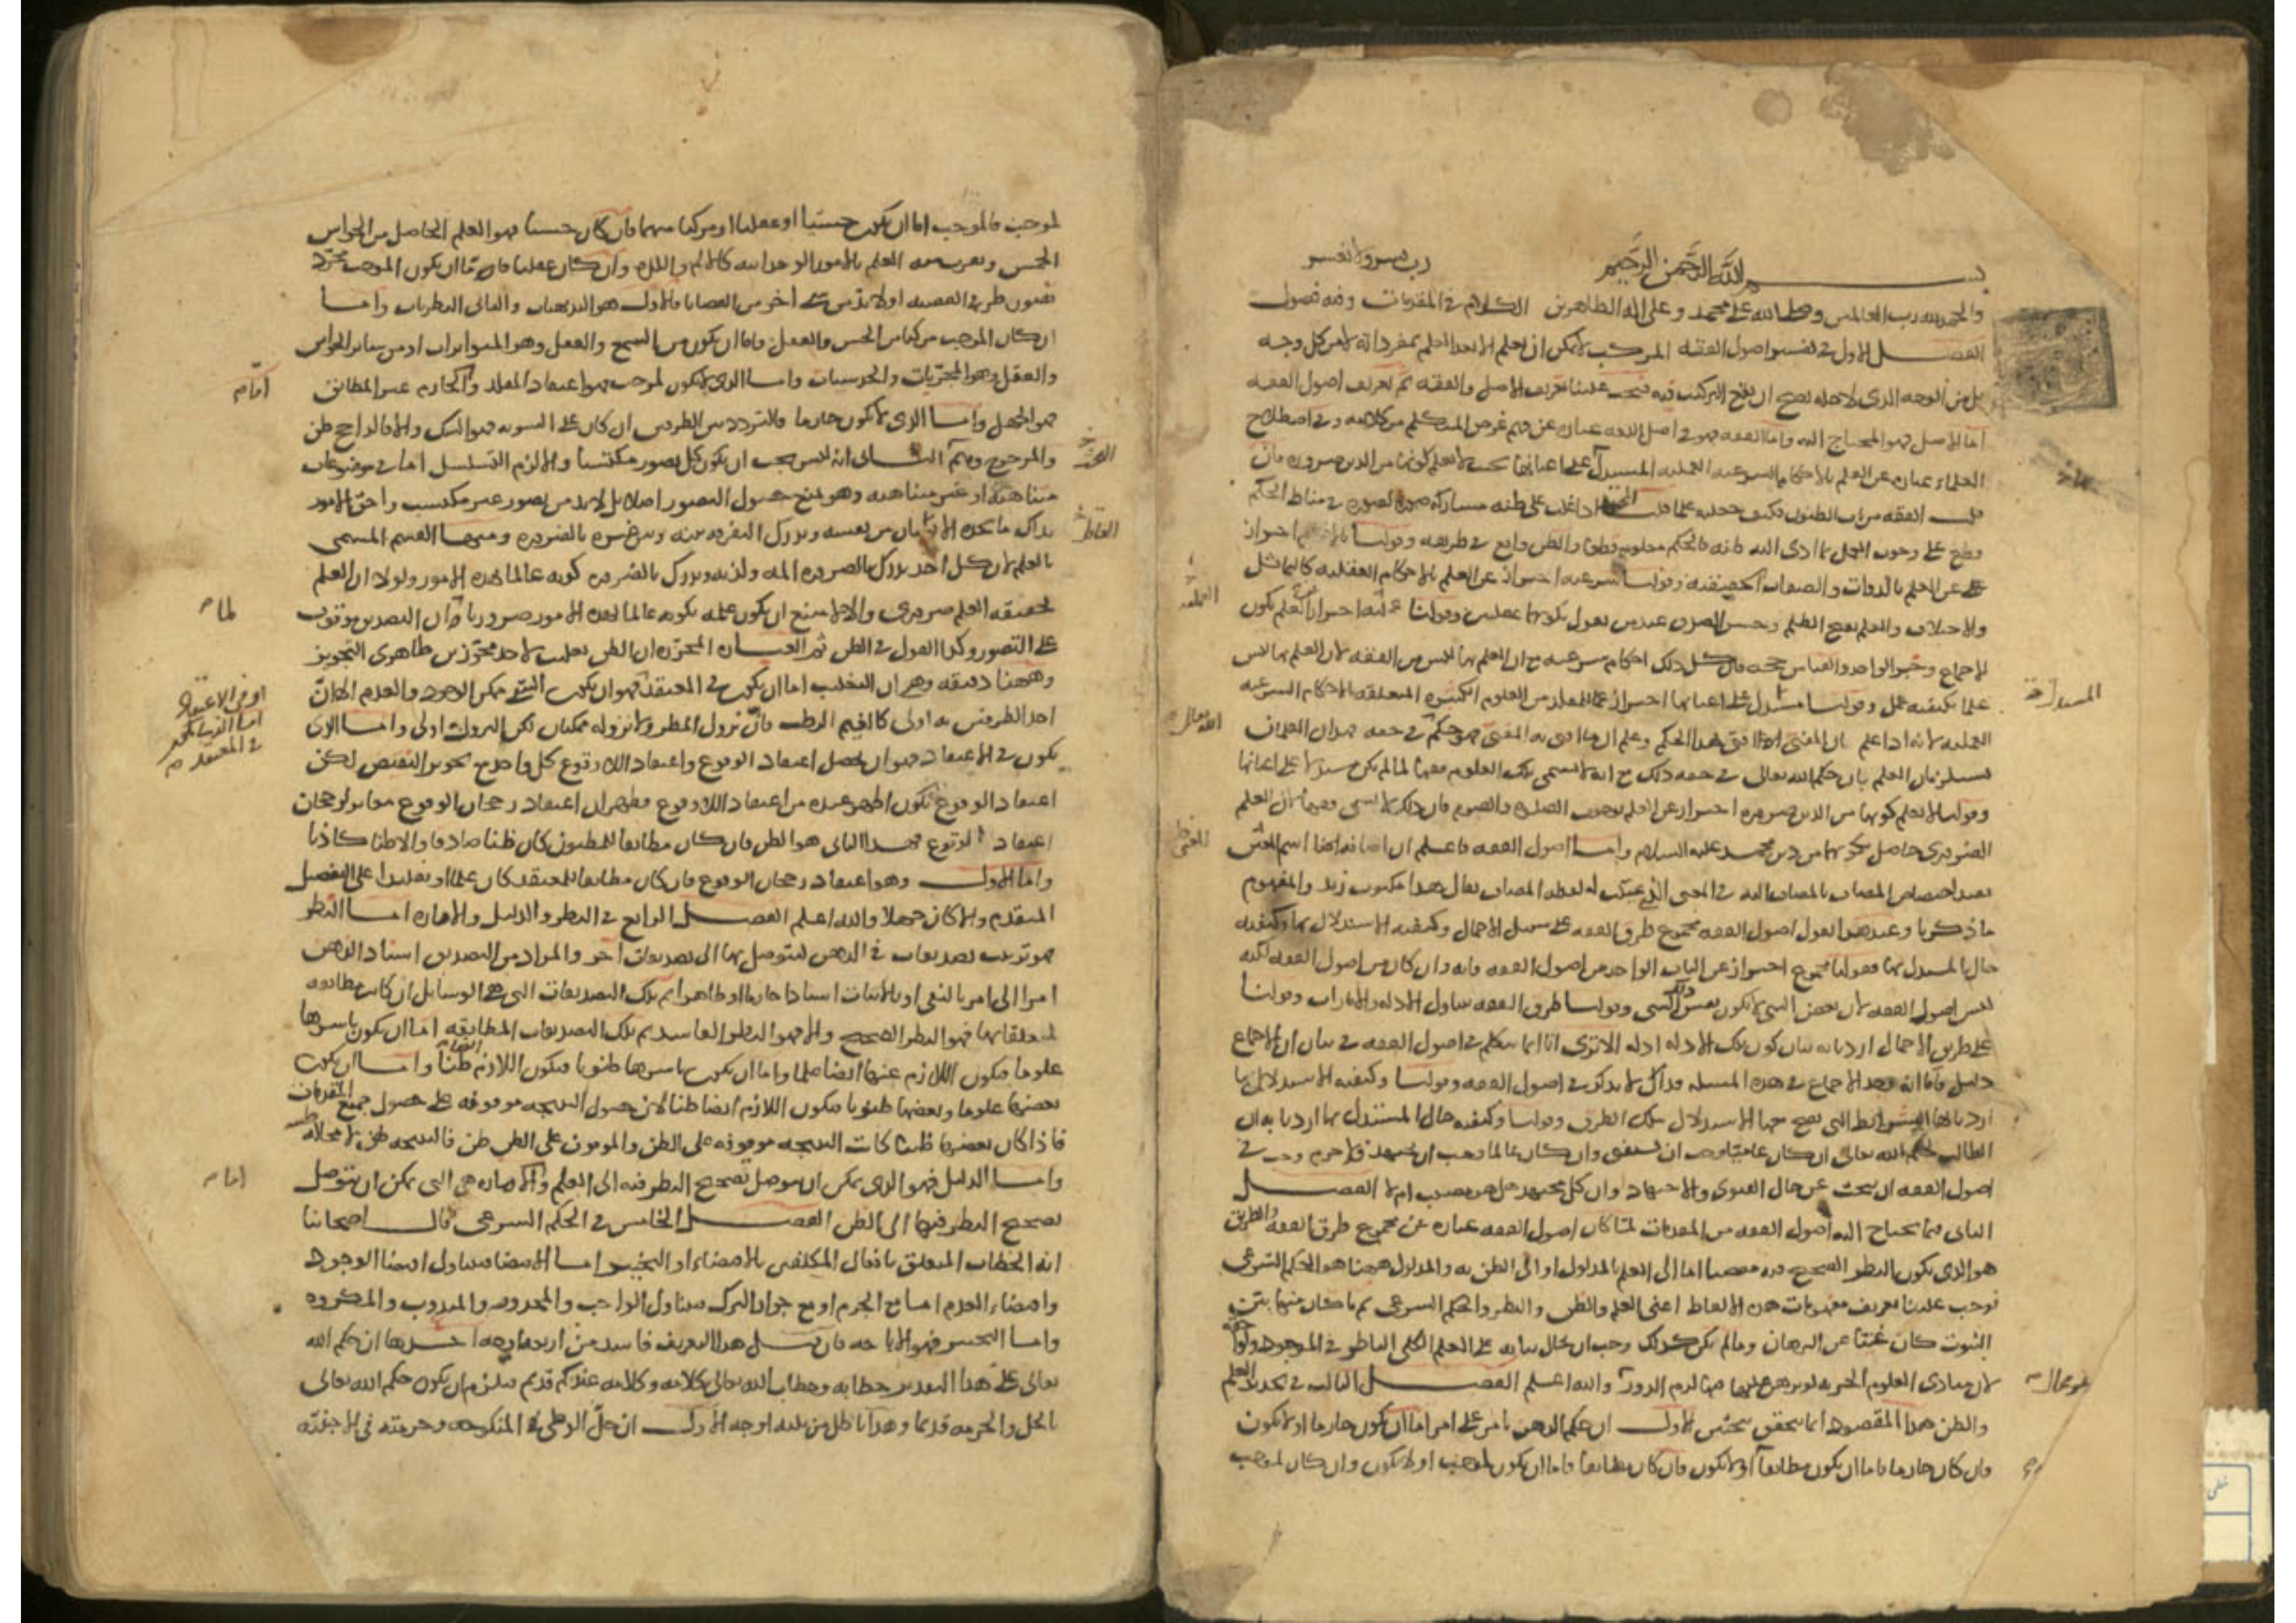 بسم الله الرحمن الرحيم رب يسر ولا تعسر
والحمد لله رب العالمين وصلى الله على محمد وعلى اله الطاهرين الكلام في المقدمات وفيه فصول
الفصل الاول في تفسير اصول الفقه المركب لا يمكن ان يعلم الا بعد العلم بمفرداته لا من كل وجه
بل من الوجه الذي لاجله يصح ان يقع التركيب فيه فيجب علينا تعريف الاصل والفقه ثم تعريف اصول الفقه
اما الاصل فهو المحتاج اليه واما الفقه فهو في اصل اللغة عبارة عن فهم غرض المتكلم من كلامه وفي اصطلاح
العلماء عبارة عن العلم بالاحكام الشرعية العملية المستدل على اعيانها بحيث لا يعلم كونها من الدين ضرورة فان
قلت الفقه من باب الظنون فكيف جعلته علما قلت المجتهد اذا غلب على ظنه مشاركة صورة لصورة في مناط الحكم
قطع على وجوب العمل بما ادى اليه ظنه فالحكم معلوم قطعا والظن واقع في طريقه وقولنا بالاحكام احتراز
عن العلم بالذوات والصفات الحقيقية وقولنا الشرعية احتراز عن العلم بالاحكام العقلية كالتماثل
والاختلاف والعلم بقبح الظلم وحسن الصدق عند من يقول بكونهما عقليين وقولنا العملية احتراز عن العلم بكون
الاجماع وخبر الواحد والقياس حجة فان كل ذلك احكام شرعية مع ان العلم بها ليس من الفقه لان العلم بها ليس
علما بكيفية عمل وقولنا المستدل على اعيانها احتراز عما للمقلد من العلوم الكثيرة المتعلقة بالاحكام الشرعية
العملية لانه اذا علم ان المفتي افتى بهذا الحكم وعلم ان ما افتى به المفتي فهو حكم الله تعالى في حقه فهذان العلمان
يستلزمان العلم بان حكم الله تعالى في حقه ذلك مع انه لا يسمى تلك العلوم فقها لما لم يكن مستدلا على اعيانها
وقولنا لا يعلم كونها من الدين ضرورة احتراز عن العلم بوجوب الصلاة والصوم فان ذلك لا يسمى فقها لان العلم
الضروري حاصل بكونهما من دين محمد عليه السلام واما اصول الفقه فاعلم ان اضافة اسم المعنى
يفيد اختصاص المضاف بالمضاف اليه في المعنى الذي عينت له لفظة المضاف يقال هذا مكتوب زيد والمفهوم
ما ذكرنا وعند هذا نقول اصول الفقه مجموع طرق الفقه على سبيل الاجمال وكيفية الاستدلال بها وكيفية
حال المستدل بها فقولنا مجموع احتراز عن الباب الواحد من اصول الفقه فانه وان كان من اصول الفقه لكنه
ليس اصول الفقه لان بعض الشيء لا يكون نفس ذلك الشيء وقولنا طرق الفقه يتناول الادلة والامارات وقولنا
على طريق الاجمال اردنا به بيان كون تلك الادلة ادلة الا ترى انا انما نتكلم في اصول الفقه في بيان ان الاجماع
دليل فاما انه وجد الاجماع في هذه المسئلة فذاك لا يذكر في اصول الفقه وقولنا وكيفية الاستدلال بها
اردنا بها الشرائط التي يصح معها الاستدلال بتلك الطرق وقولنا وكيفية حال المستدل بها اردنا به ان
الطالب لحكم الله تعالى ان كان عاميا وجب ان يستفتي وان كان عالما وجب ان يجتهد فلا جرم وجب في
اصول الفقه ان يبحث عن حال الفتوى والاجتهاد وان كل مجتهد هل هو مصيب ام لا الفصل
الثاني فيما يحتاج اليه اصول الفقه من المقدمات لما كان اصول الفقه عبارة عن مجموع طرق الفقه والطريق
هو الذي يكون النظر الصحيح فيه مفضيا اما الى العلم بالمدلول او الى الظن به والمدلول ههنا هو الحكم الشرعي
فوجب علينا تعريف مفهومات هذه الالفاظ اعني العلم والظن والنظر والحكم الشرعي ثم ما كان منها بين
الثبوت كان غنيا عن البرهان وما لم يكن كذلك وجب ان يحال بيانه على العلم الكلي الناظر في الموجود ولواحقه
لان مبادئ العلوم الجزئية لو برهن عليها فيها لزم الدور والله اعلم الفصل الثالث في تحديد العلم
والظن هذا المقصود انما يتحقق ببحثين الاول ان حكم الذهن بامر على امر اما ان يكون جازما او لا يكون
فان كان جازما فاما ان يكون مطابقا او لا يكون فان كان مطابقا فاما ان يكون لموجب او لا يكون وان كان لموجب
المجتهد
العملية
الله تعالى
لموجب فالموجب اما ان يكون حسيا او عقليا او مركبا منهما فان كان حسيا فهو العلم الحاصل من الحواس
الخمس ويقرب منه العلم بالامور الوجدانية كالالم واللذة وان كان عقليا فاما ان يكون الموجب مجرد
تصور طرفي القضية او لا بد من شيء اخر من القضايا فالاول هو البديهيات والثاني النظريات واما
ان كان الموجب مركبا من الحس والعقل فاما ان يكون من السمع والعقل وهو المتواترات او من سائر الحواس
والعقل وهو المجربات والحدسيات واما الذي لا يكون لموجب فهو اعتقاد المقلد واما الجازم غير المطابق
فهو الجهل واما الذي لا يكون جازما فالتردد بين الطرفين ان كان على السوية فهو الشك والا فالراجح ظن
والمرجوح وهم البحث الثاني انه ليس يجب ان يكون كل تصور مكتسبا والا لزم التسلسل اما في موضوعات
متناهية او غير متناهية وهو يمنع حصول التصور اصلا بل لا بد من تصور غير مكتسب واحق الامور
بذاك ما يجده الانسان من نفسه ويدرك التفرقة بينه وبين غيره بالضرورة ومنها القسم المسمى
بالعلم لان كل احد يدرك بالضرورة المه ولذته ويدرك بالضرورة كونه عالما بهذه الامور ولولا ان العلم
بحقيقة العلم ضروري والا لامتنع ان يكون علمه بكونه عالما بهذه الامور ضروريا لما ان التصديق موقوف
على التصور وكذا القول في الظن ثم العبارة المحررة ان الظن تغليب لاحد مجوزين ظاهري التجويز
وههنا دقيقة وهي ان التغليب اما ان يكون في المعتقد فهو ان يكون الشيء ممكن الوجود والعدم الا ان
احد الطرفين به اولى كالغيم الرطب فان نزول المطر ولا نزوله ممكنان لكن النزول اولى واما الذي
يكون في الاعتقاد فهو ان يحصل اعتقاد الوقوع واعتقاد اللاوقوع كل واحد مع تجويز النقيض لكن
اعتقاد الوقوع يكون اظهر عنده من اعتقاد اللاوقوع فظهر ان اعتقاد رجحان الوقوع مغاير لرجحان
اعتقاد الوقوع فهذا الثاني هو الظن فان كان مطابقا للمظنون كان ظنا صادقا والا ظنا كاذبا
واما الاول وهو اعتقاد رجحان الوقوع فان كان مطابقا للمعتقد كان علما او تقليدا على التفصيل
المتقدم والا كان جهلا والله اعلم الفصل الرابع في النظر والدليل والامارة اما النظر
فهو ترتيب تصديقات في الذهن ليتوصل بها الى تصديقات اخر والمراد من التصديق اسناد الذهن
امرا الى امر بالنفي او بالاثبات اسنادا جازما او ظاهرا ثم تلك التصديقات التي هي الوسائل ان كانت مطابقة
لمتعلقاتها فهو النظر الصحيح والا فهو النظر الفاسد ثم تلك التصديقات المطابقة اما ان يكون باسرها
علوما فيكون اللازم عنها ايضا علما واما ان يكون باسرها ظنونا فيكون اللازم ظنا واما ان يكون
بعضها علوما وبعضها ظنونا فيكون اللازم ايضا ظنا لان حصول النتيجة موقوفة على حصول جميع المقدمات
فاذا كان بعضها ظنا كانت النتيجة موقوفة على الظن والموقوف على الظن ظن فالنتيجة ظنية لا محالة
واما الدليل فهو الذي يمكن ان يتوصل بصحيح النظر فيه الى العلم واما الامارة هي التي يمكن ان يتوصل
بصحيح النظر فيها الى الظن الفصل الخامس في الحكم الشرعي قال اصحابنا
انه الخطاب المتعلق بافعال المكلفين بالاقتضاء او التخيير اما الاقتضاء فيتناول اقتضاء الوجود
واقتضاء العدم اما مع الجزم او مع جواز الترك فيتناول الواجب والمحظور والمندوب والمكروه
واما التخيير فهو الاباحة فان قيل هذا التعريف فاسد من اربعة اوجه احدها ان حكم الله
تعالى على هذا التقدير خطابه وخطاب الله تعالى كلامه وكلامه عندكم قديم فيلزم ان يكون حكم الله تعالى
بالحل والحرمة قديما وهذا باطل من ثلثة اوجه الاول ان حل الوطي في المنكوحة وحرمته في الاجنبية
البحث
اما
اما